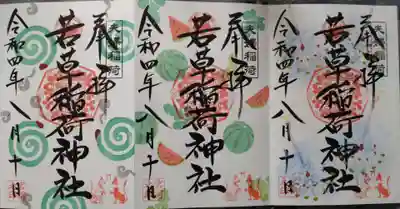 奉拝
若草稲荷神社
令和四年八月十日
奉拝
若草稲荷神社
令和四年八月十日
奉拝
若草稲荷神社
令和四年八月十日